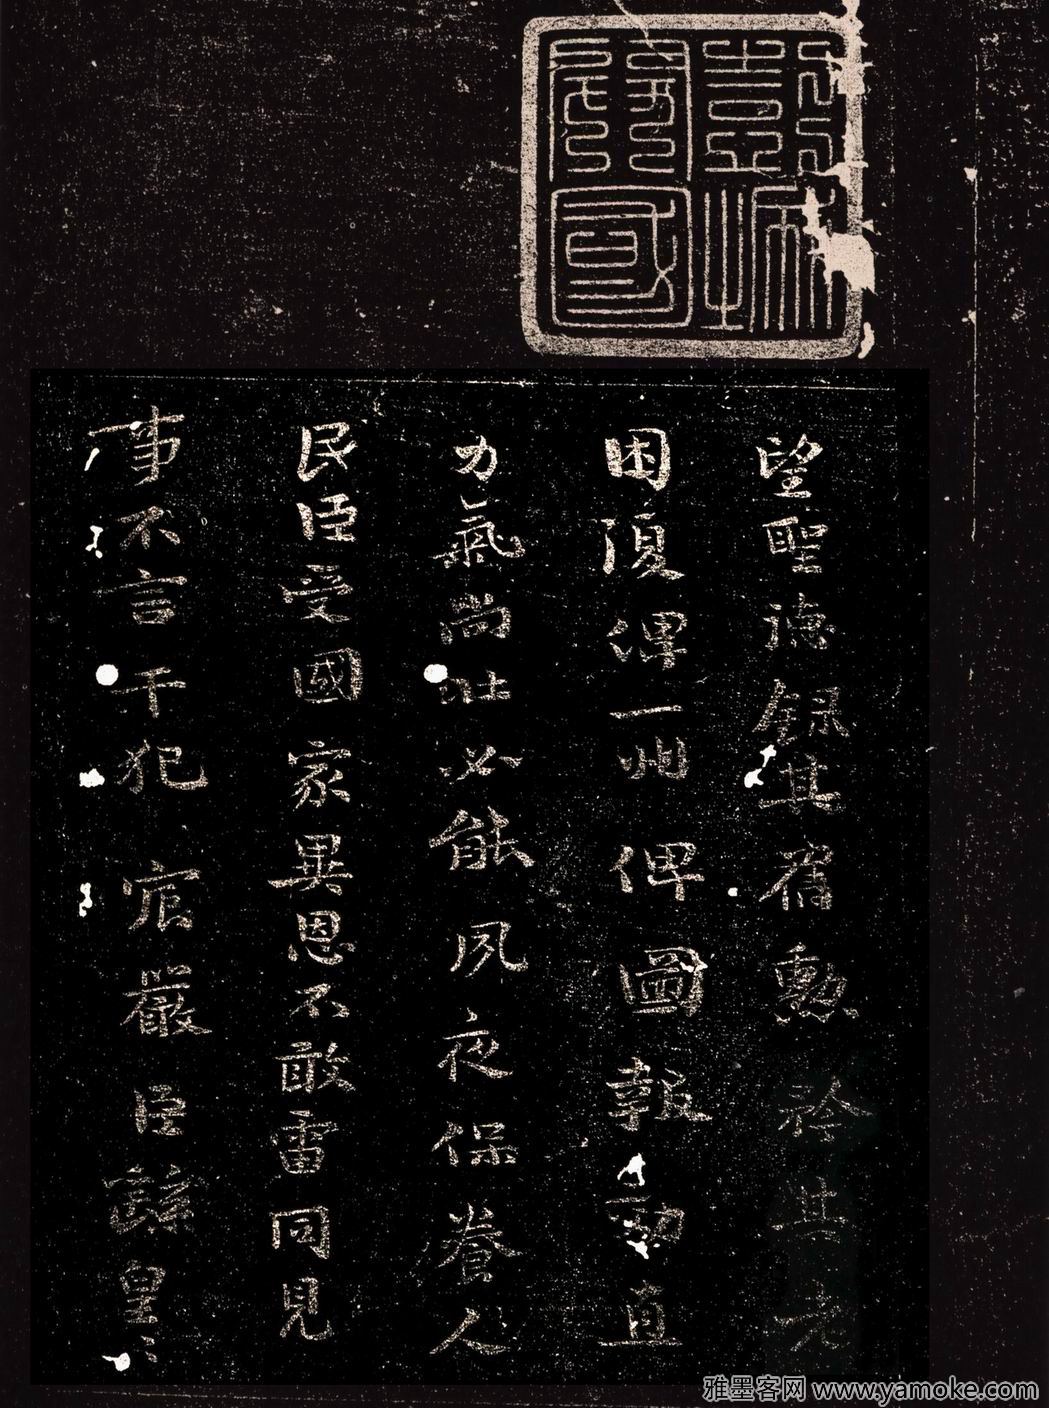 望聖德錄其舊勳矜其老
困復俾一州俾圖報効直
力氣尚壯必能夙夜保養人
民臣受國家異恩不敢雷同見
事不言干犯宸嚴臣繇皇〻
雅墨客网 www.yamoke.com